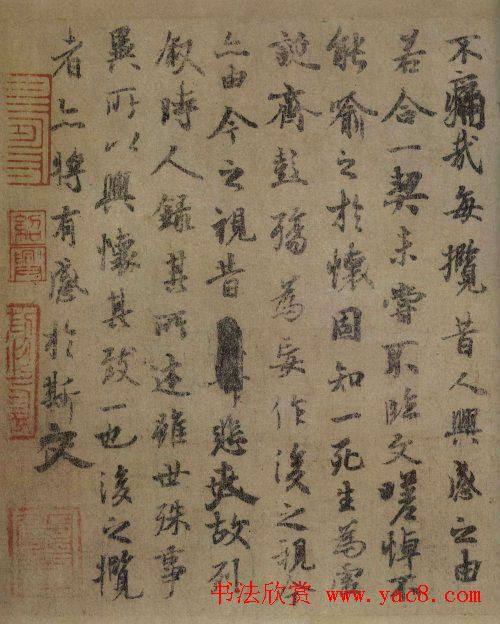 不痛哉每攬昔人興感之由
若合一契未嘗不臨文嗟悼不
能喻之於懷固知一死生為虛
誕齊彭殤為妄作後之視今
亦由今之視昔悲夫故列
叙時人錄其所述雖世殊事
異所以興懷其致一也後之攬
者亦將有感於斯文
紹興
书法欣赏 www.yac8.com